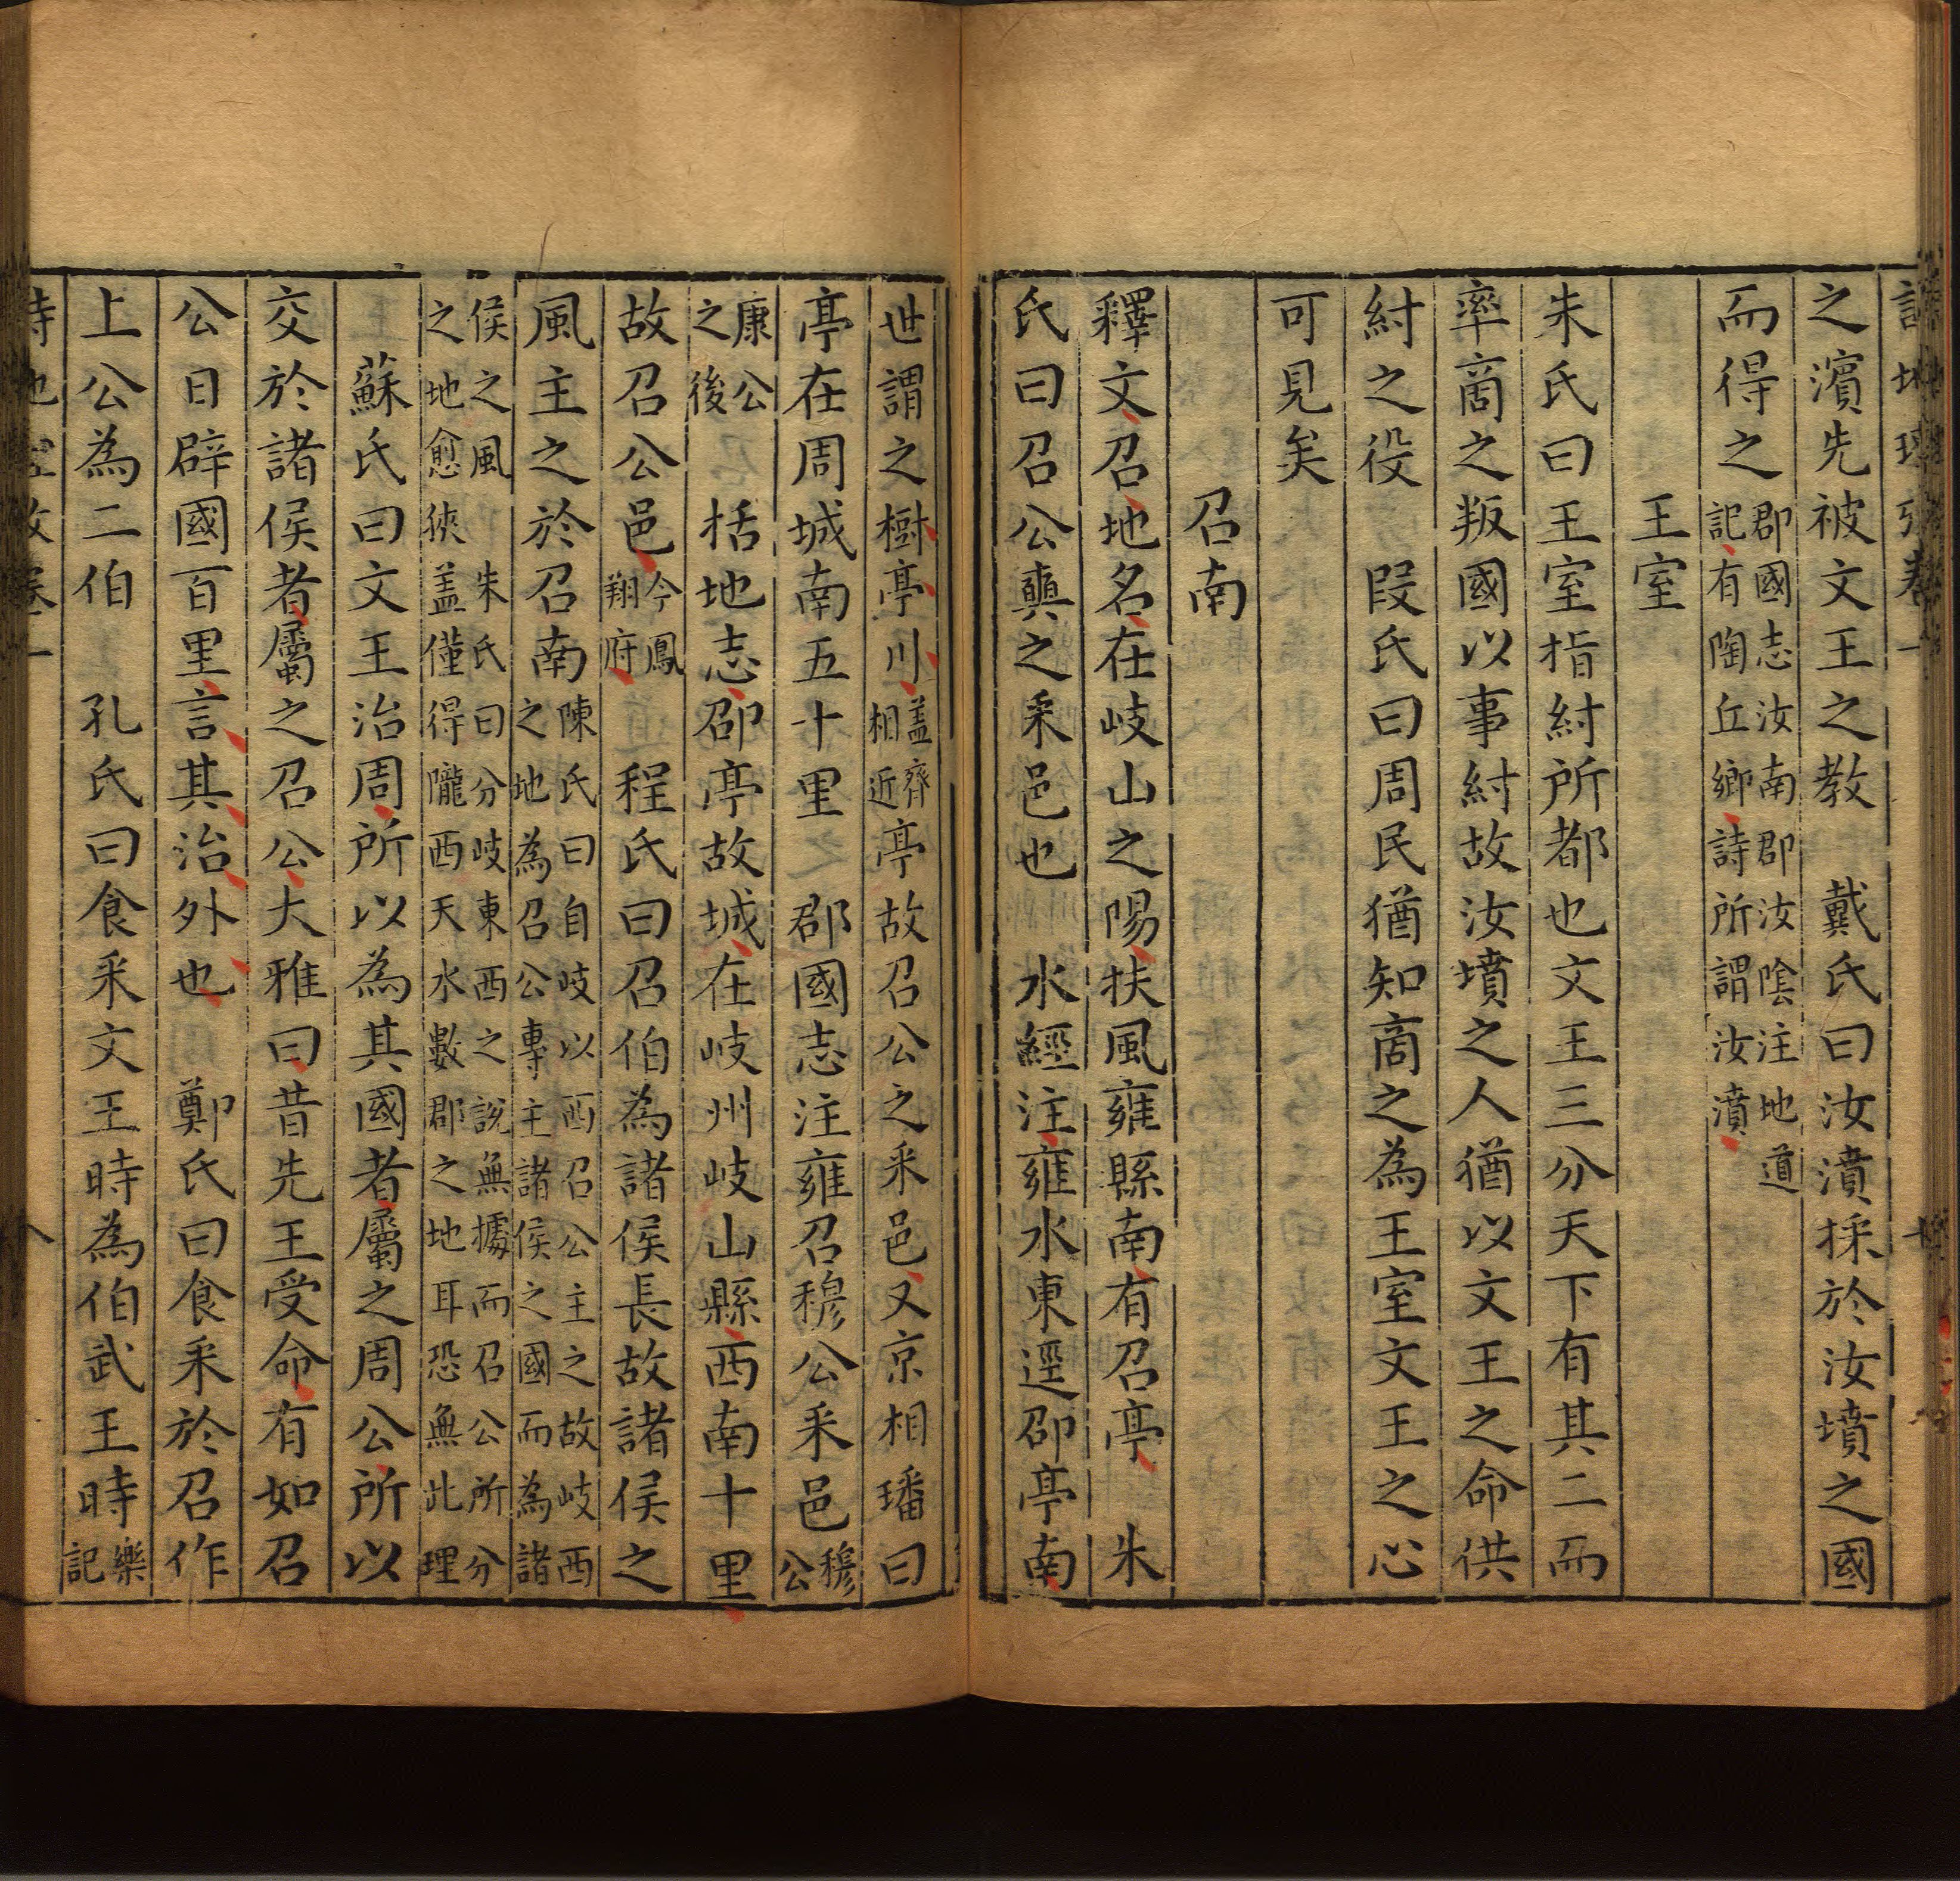 之濱先被文王之教　戴氏曰汝濆採於汝墳之國
而得之郡國志汝南郡汝陰注地道記有陶丘鄉詩所謂汝濆
王室
朱氏曰王室指紂所都也文王三分天下有其二而
率商之叛國以事紂故汝墳之人猶以文王之命供
紂之役　段氏曰周民猶知商之為王室文王之心
可見矣
召南
釋文召地名在岐山之陽扶風雍縣南有召亭　朱
氏曰召公奭之采邑也　水經注雍水東逕邵亭南
世謂之樹亭川蓋齊相近亭故召公之采邑又京相璠曰
亭在周城南五十里　郡國志注雍召穆公采邑穆公
康公之後　括地志邵亭故城在岐州岐山縣西南十里
故召公邑今鳳翔府　程氏曰召伯為諸侯長故諸侯之
風主之於召南陳氏曰自岐以西召公主之故岐西之地為召公專主諸侯之國而為諸
侯之風之地愈狹　朱氏曰分岐東西之說無據而召公所分蓋僅得隴西天水數郡之地耳恐無此理
蘇氏曰文王治周所以為其國者屬之周公所以
交於諸侯者屬之召公大雅曰昔先王受命有如召
公日辟國百里言其治外也　鄭氏曰食采於召作
上公為二伯　孔氏曰食采文王時為伯武王時樂記